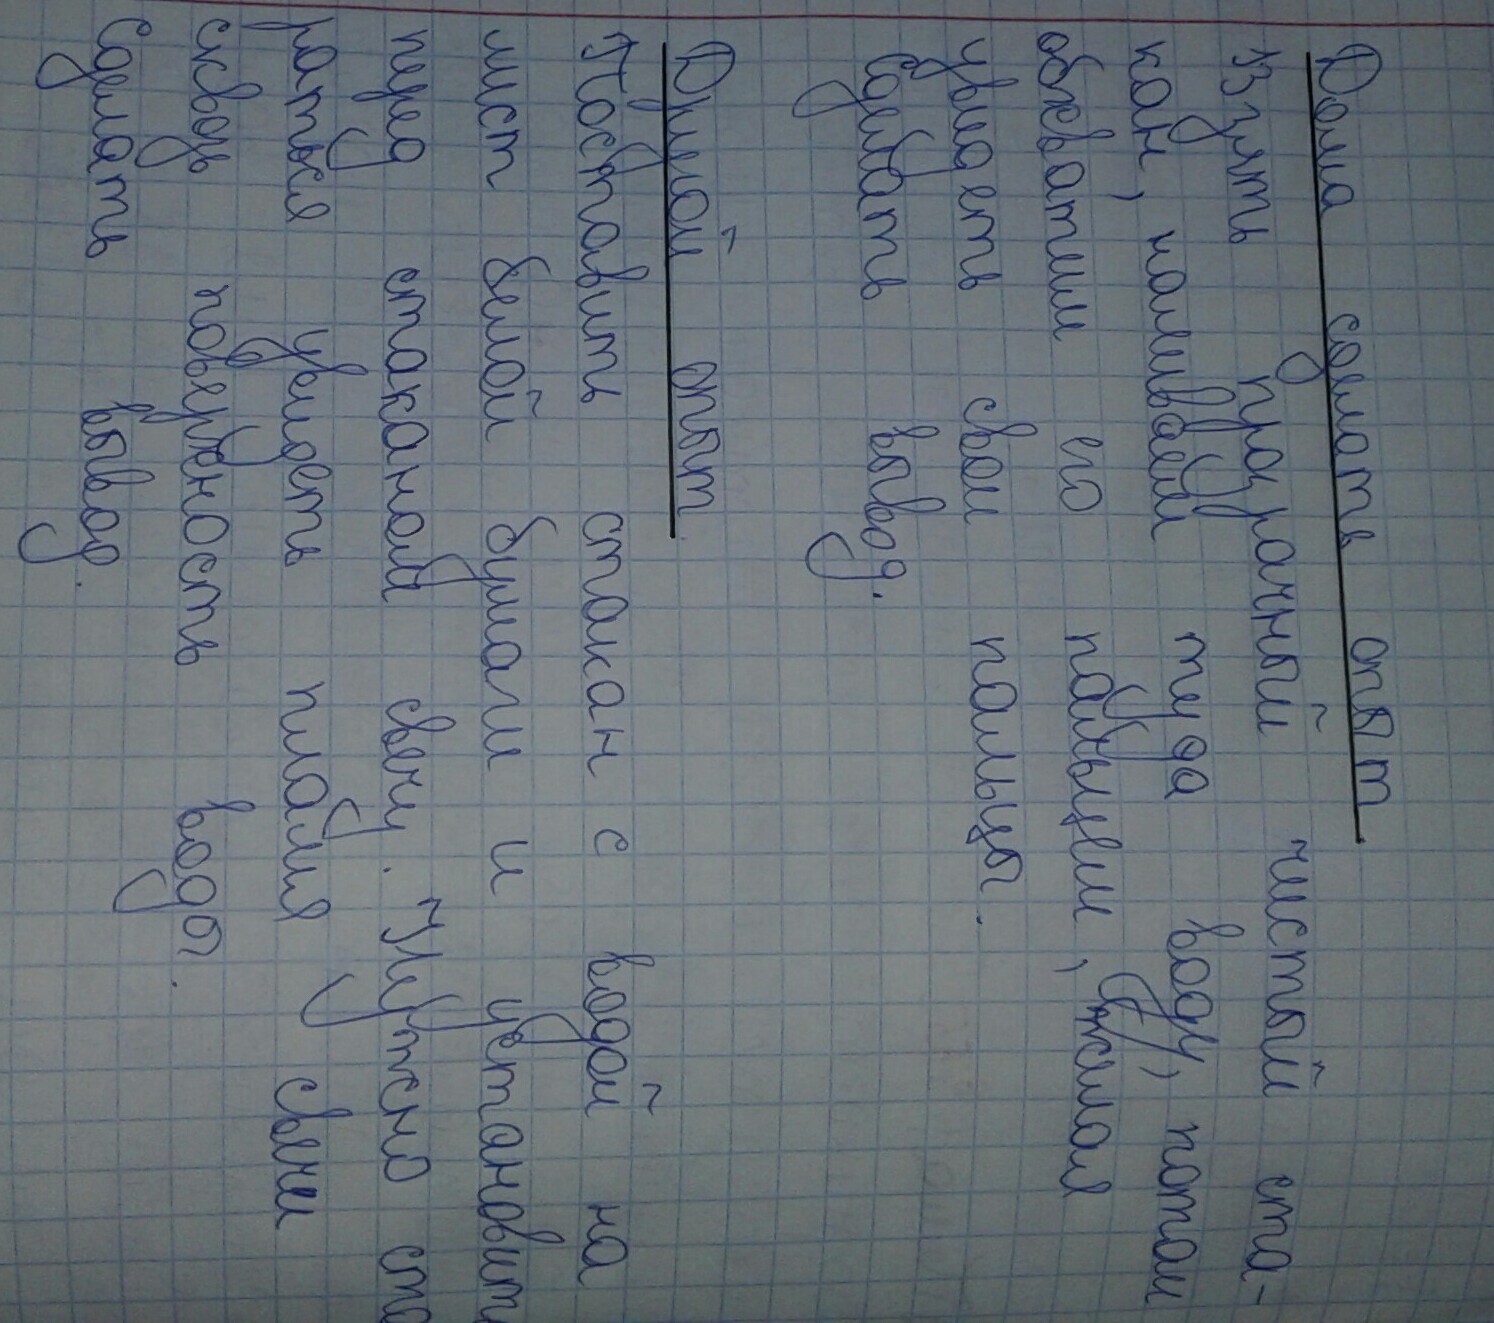 Дома сделать опыт
Взять прозрачный чистый ста-
кан, наливаем туда воду, потом
обхватим его пальцем, Желая
увидеть свои пальцы.
Сделать вывод.
Другой опыт
Поставить стакан с водой на
лист белой бумаги и установить
перед стаканом свечу. Нужно ста
раться увидеть пламя свечи
сквозь поверхность воды.
Сделать вывод.